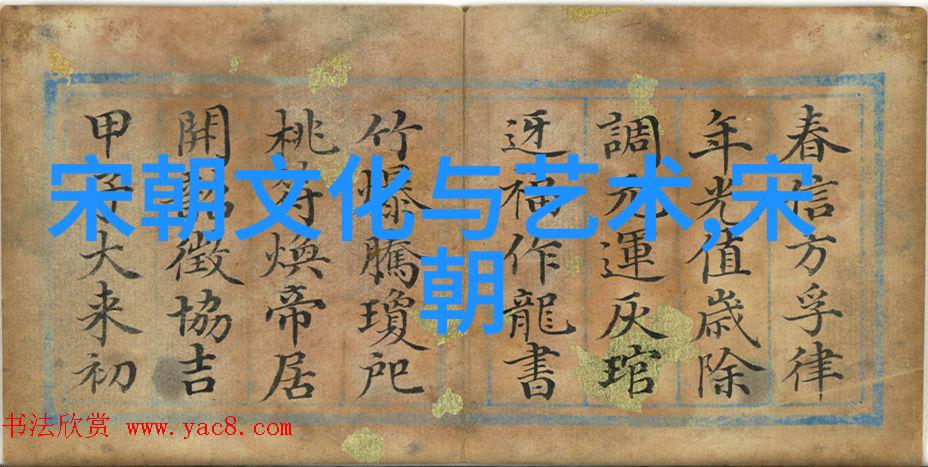 宋朝文化与艺术,宋
朝
春信方孚律
年光值歲除
調元運灰琯
迓福作龍書
竹爆騰瓊戺
桃符煥帝居
開徵協吉
甲子大来初
书法欣赏 www.yac8.com